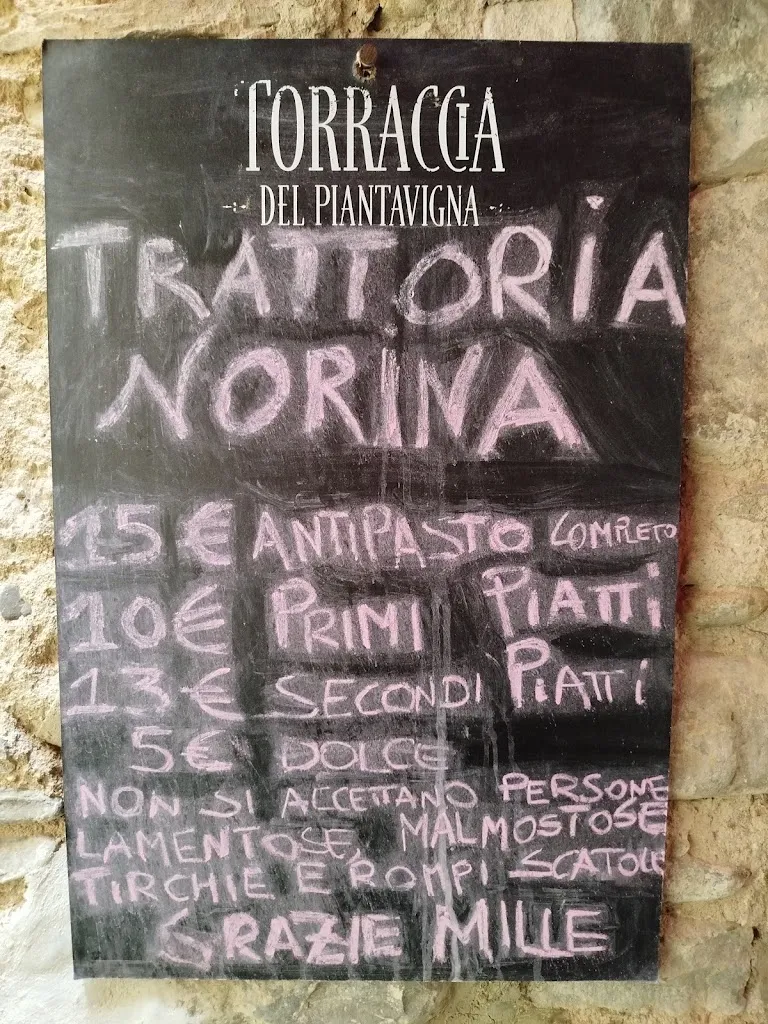 TORRACCIA
DEL PIANTAVIGNA
TRATTORiA
NORiNA
15€ ANTIPASTO COMPLETO
10€ PRIMI PiATTi
13€ SECONDI PiATTi
5€ DOLCE
NON SI ACCETTANO PERSONE
LAMENTOSE, MALMOSTOSE
TIRCHIE E ROMPI SCATOLE
GRAZIE MILLE